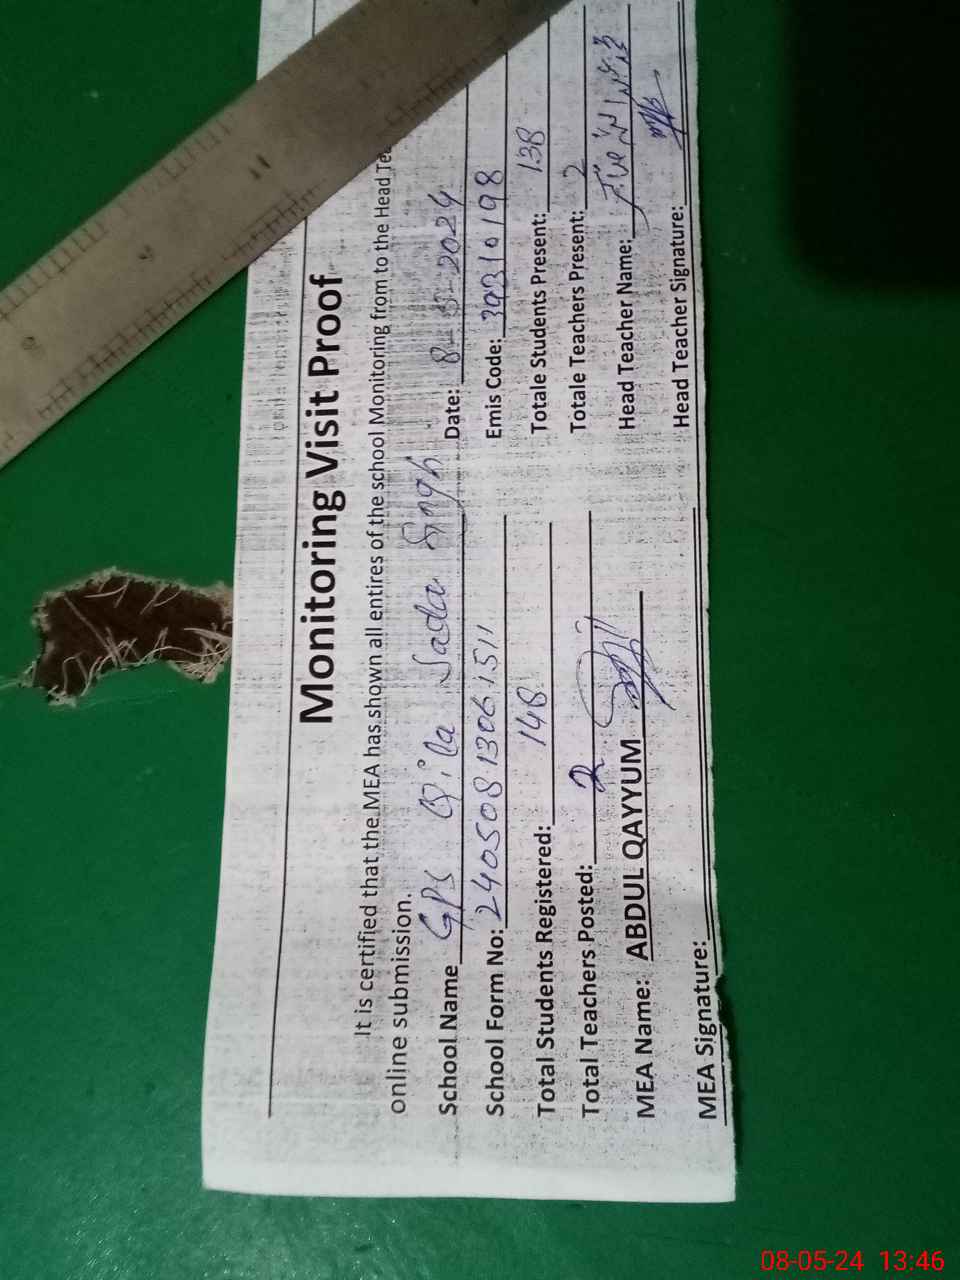 Monitoring Visit Proof
It is certified that the MEA has shown all entires of the school Monitoring from to the Head Tea
online submission.
School Name GPS Qila Sada Singh Date: 8-5-2024
School Form No: 24050813061511 Emis Code: 39310198
Total Students Registered: 148 Totale Students Present: 138
Total Teachers Posted: 2 Totale Teachers Present: 2
MEA Name: ABDUL QAYYUM Head Teacher Name:
MEA Signature: Head Teacher Signature:
11
08-05-24 13:46